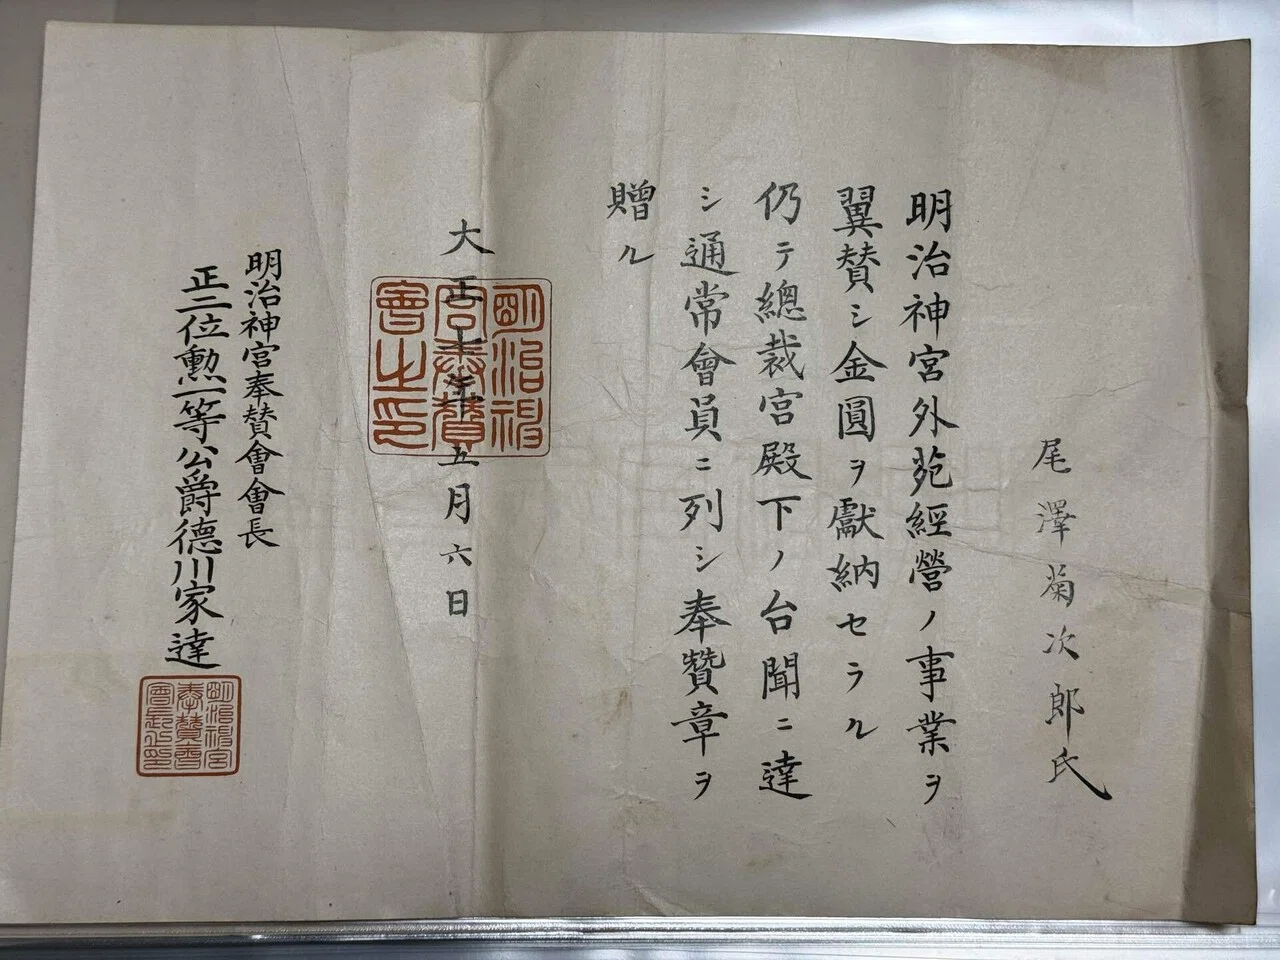 尾澤菊次郎氏
明治神宮外苑經營ノ事業ヲ
翼賛シ金圓ヲ獻納セラル
仍テ總裁宮殿下ノ台聞ニ達
シ通常會員ニ列シ奉贊章ヲ
贈ル
大正十年五月六日
明治神
宮奉贊
會之印
明治神宮奉賛會會長
正二位勲一等公爵德川家達
明治神宮
奉贊會
會長之印